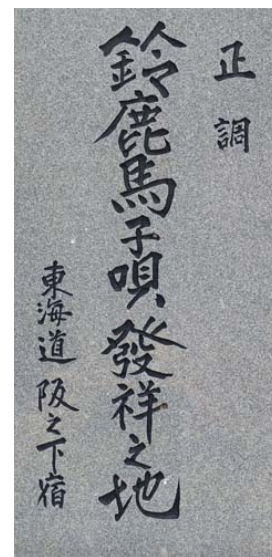 正調
鈴鹿馬子唄發祥之地
東海道阪之下宿